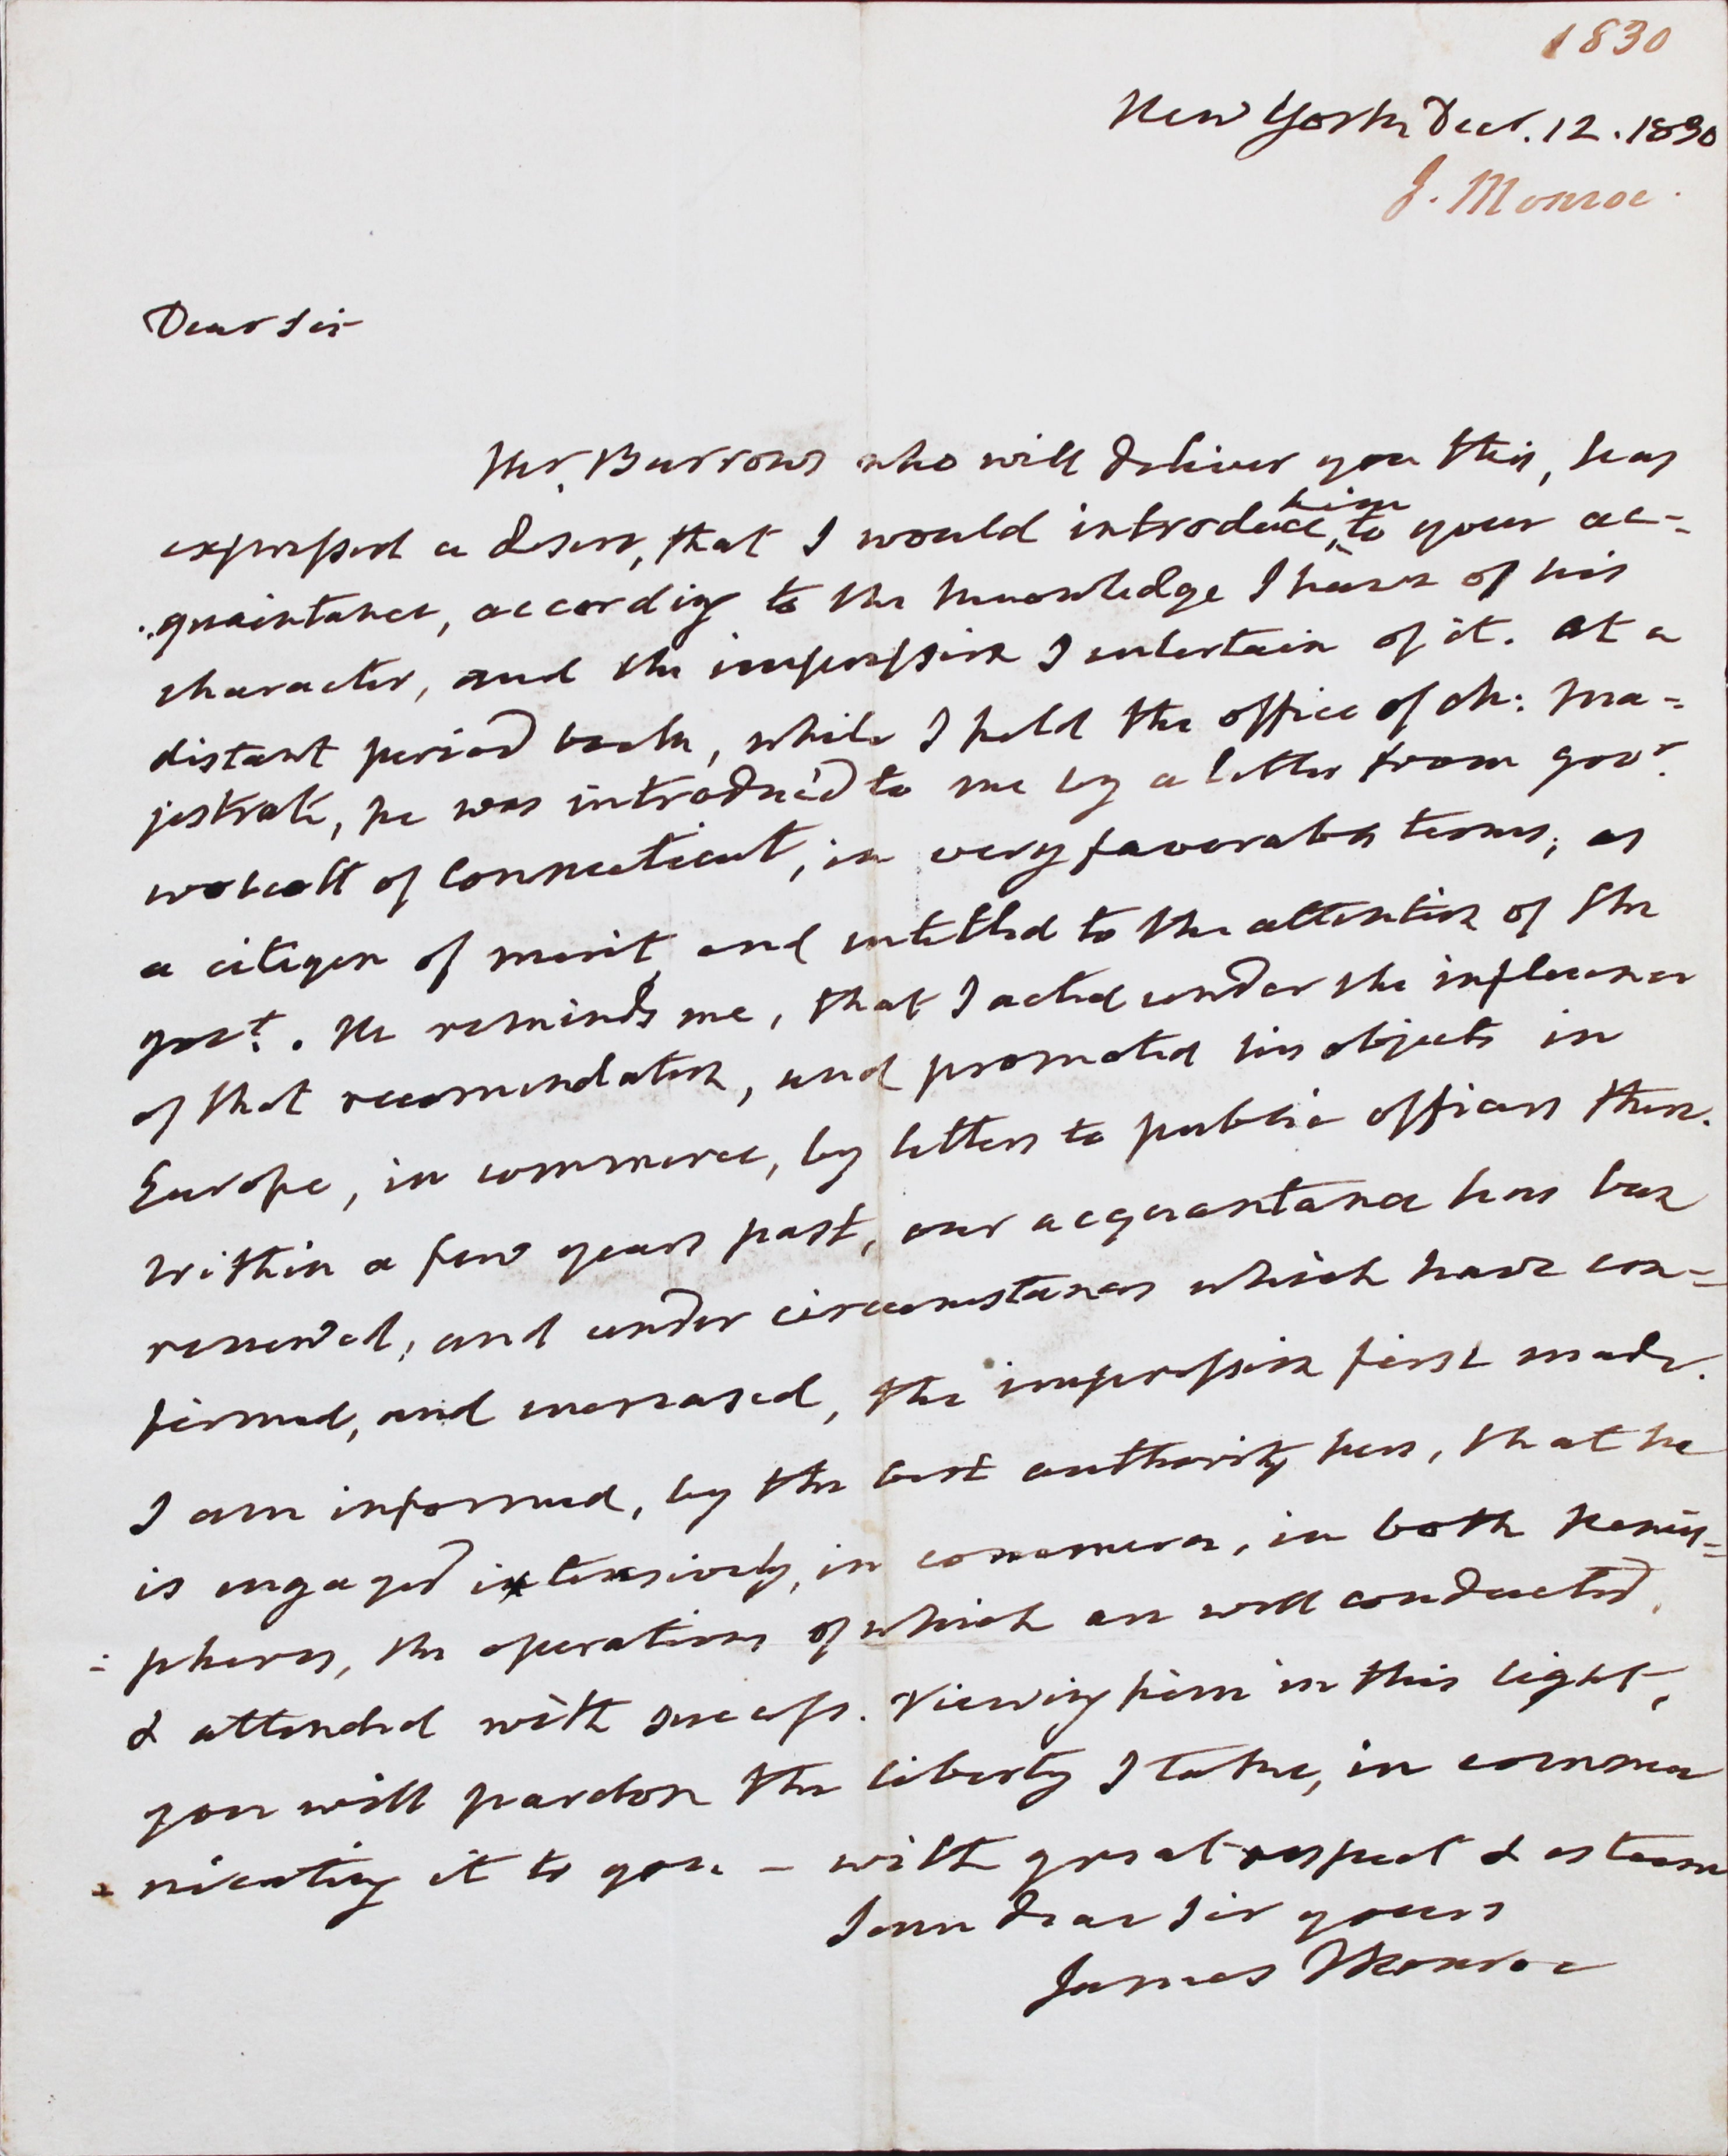 1830
New York Decr. 12. 1830
J. Monroe.
Dear Sir
Mr. Burrows who will deliver you this, has
expressed a desire, that I would introduce him to your ac-
quaintance, according to the knowledge I have of his
character, and the impression I entertain of it. At a
distant period back, while I held the office of ch: ma-
jestrate, he was introduc'd to me by a letter from govr.
wolcott of Connecticut, in very favorable terms, as
a citizen of merit, and entitled to the attention of the
govt. He reminds me, that I acted under the influence
of that recomendation, and promoted his objects in
Europe, in commerce, by letters to public officers there.
Within a few years past, our acquantance has been
renew'd, and under circumstances which have con-
firmed, and encreased, the impression first made.
I am informed, by the best authority here, that he
is engaged extensively, in commerce, in both hemis-
pheres, the operations of which are well conducted,
& attended with success. Viewing him in this light,
you will pardon the liberty I take, in commu
nicating it to you - with great respect & esteem
I am dear Sir yours
James Monroe